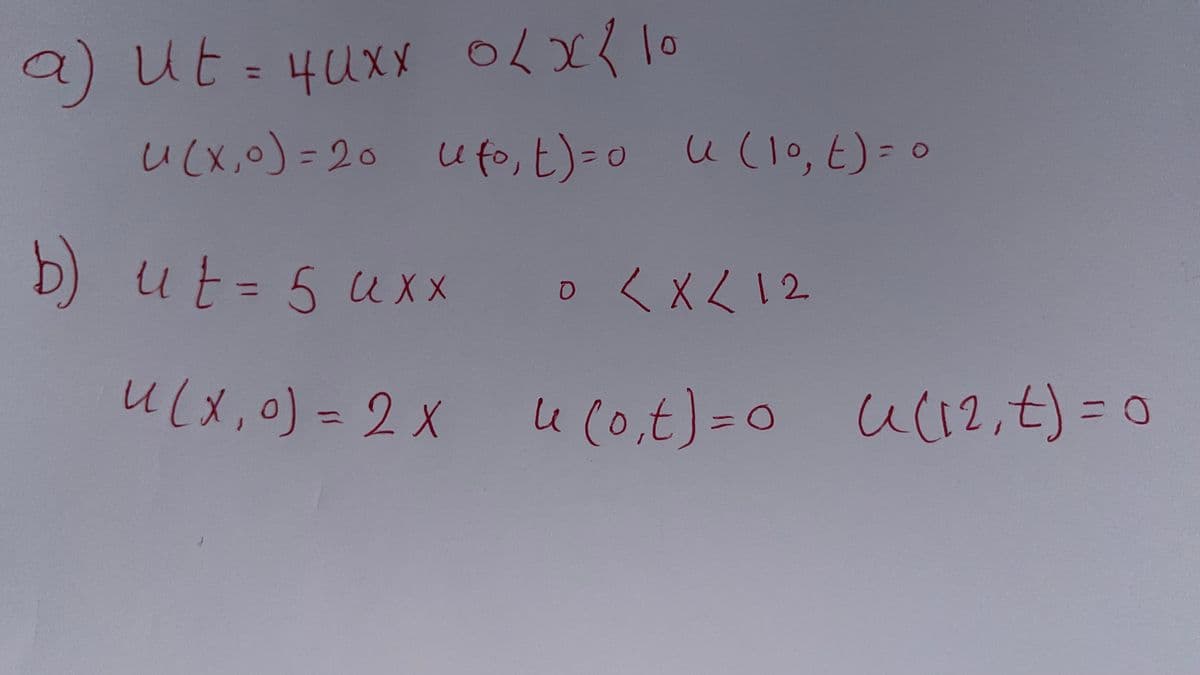 a) ut = 4uxx 0<x<10
u(x,0) = 20 u(0,t)=0 u(10,t)=0
b) ut = 5uxx 0<x<12
u(x,0) = 2x u(0,t)=0 u(12,t)=0